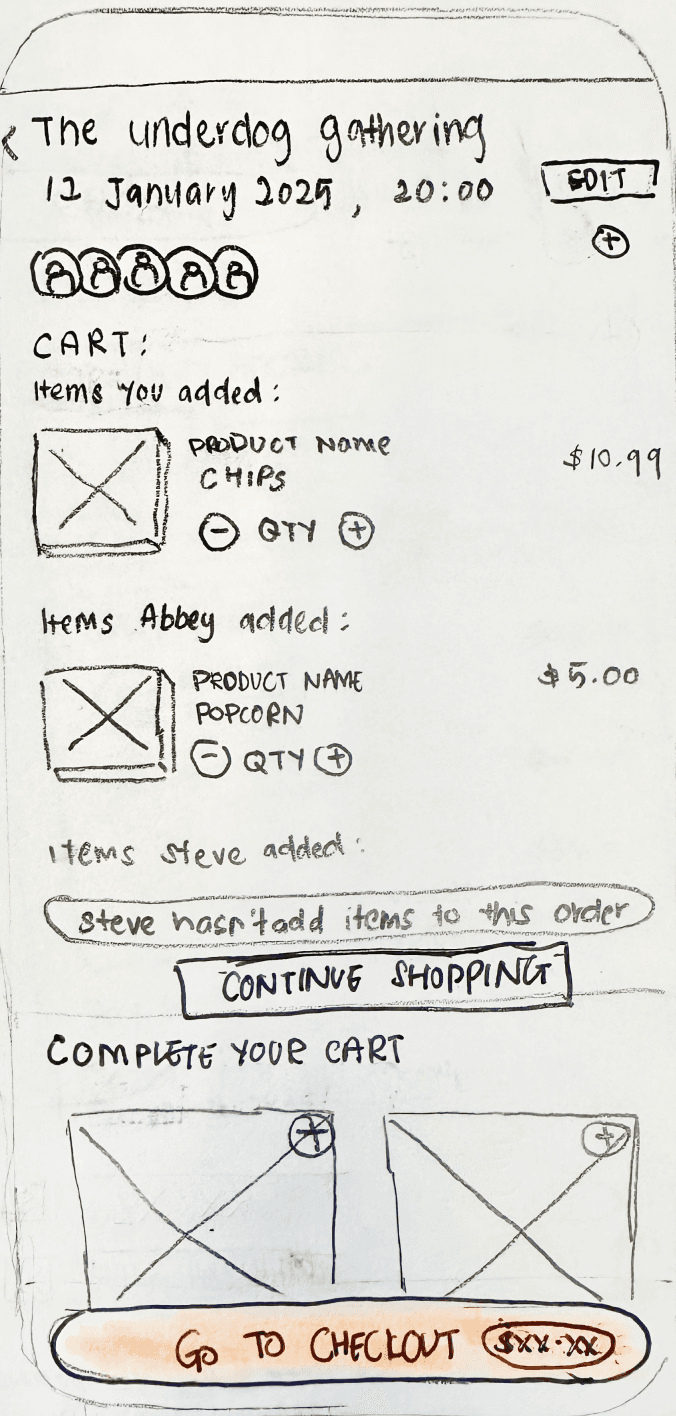 < The underdog gathering
12 January 2025, 20:00
EDIT
+
CART:
Items you added:
PRODUCT Name
CHIPS
$10.99
- QTY +
Items Abbey added:
PRODUCT NAME
POPCORN
$5.00
- QTY +
Items Steve added:
Steve hasn't add items to this order
CONTINUE SHOPPING
COMPLETE YOUR CART
+ +
GO TO CHECKOUT $XX.XX